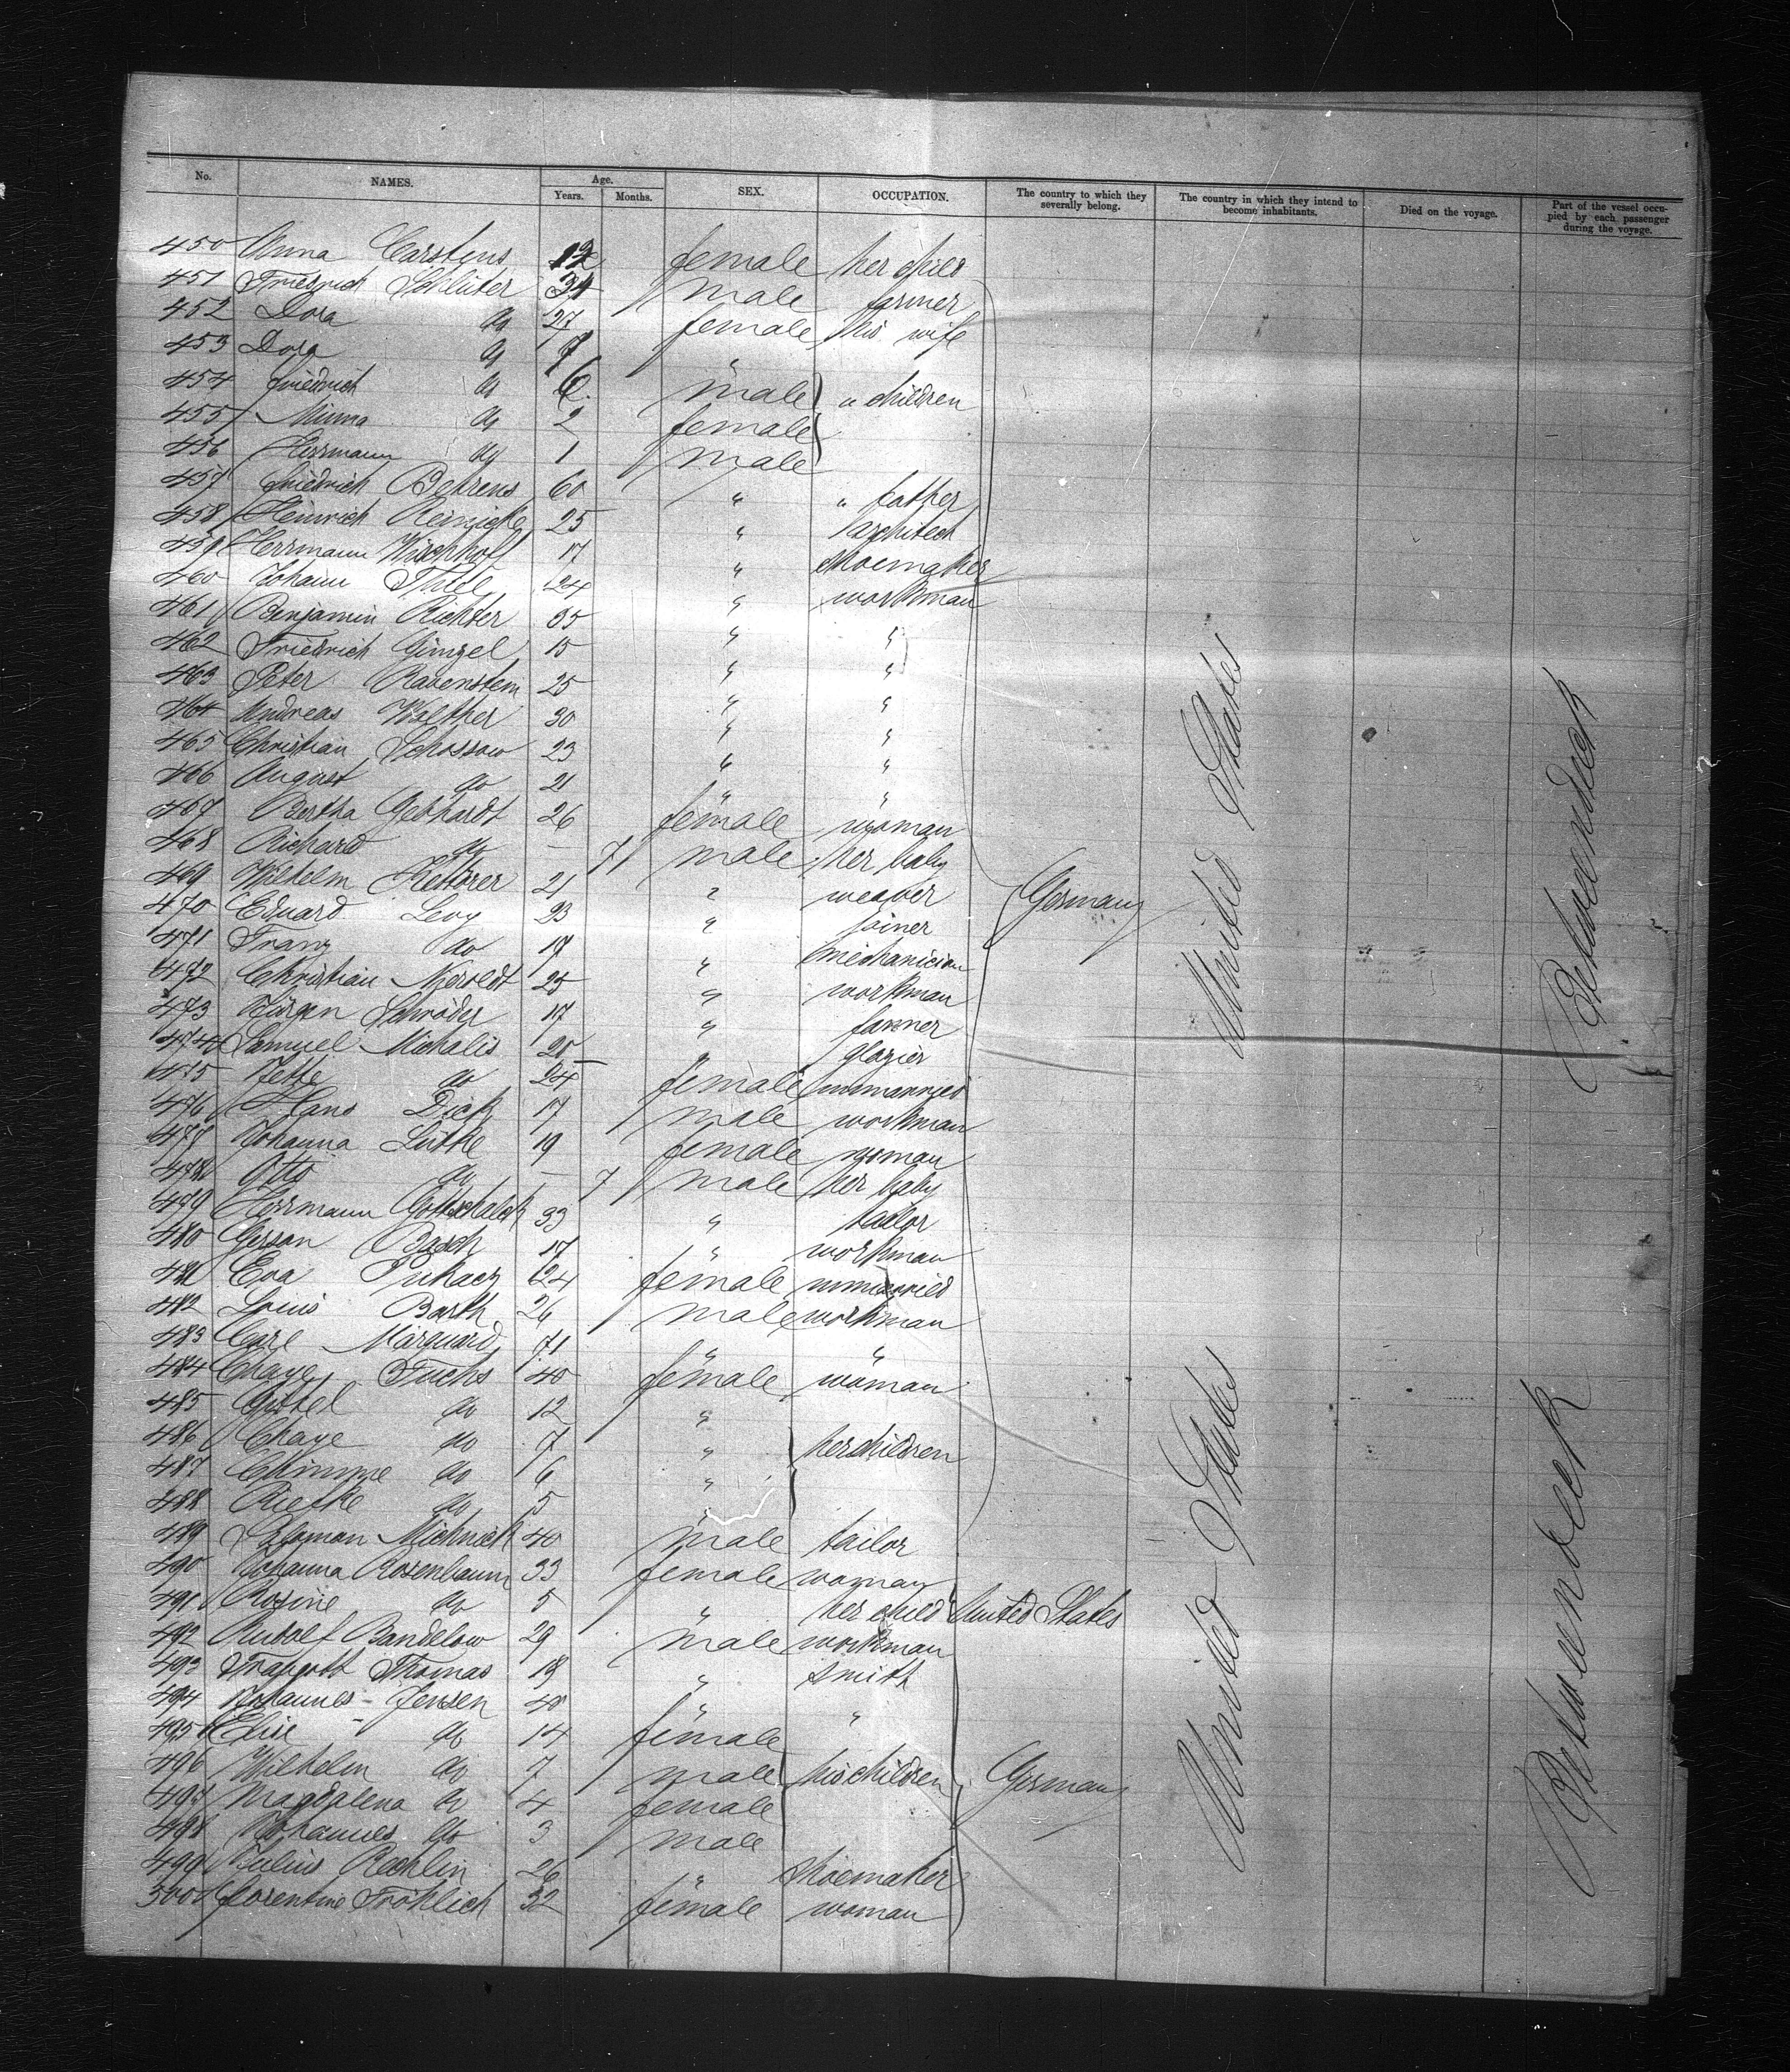 No. NAMES. Age. Years. Months. SEX. OCCUPATION. The country to which they severally belong. The country in which they intend to become inhabitants. Died on the voyage. Part of the vessel occupied by each passenger during the voyage.
450 Anna Carstens 12 female her child
451 Friedrich Schlüter 34 male farmer
452 Dora do 27 female his wife
453 Dora do 7
454 Friedrich do 6 male " children
455 Minna do 2 female
456 Herrmann do 1 male
457 Friedrich Behrens 60 " " father
458 Heinrich Reinicke 25 " architect
459 Herrmann Wischhoff 17 " shoemaker
460 Johann Thiele 24 " workman
461 Benjamin Richter 35 " "
462 Friedrich Gingel 15 " "
463 Peter Ravenstein 25 " "
464 Andreas Walther 30 " "
465 Christian Schossow 23 " "
466 August do 21 " "
467 Bertha Gebhardt 26 female woman
468 Richard do — 7 male her baby
469 Wilhelm Ketterer 21 " weaver
470 Eduard Levy 23 " joiner
471 Franz do 17 " mechanician
472 Christian 25 " workman
473 Jürgen Schröder 17 " farmer
474 Samuel Michalis 20 " glazier
475 Jette do 24 female unmarried
476 Hans Dick 17 male workman
477 Johanna Lütke 19 female woman
478 Otto do — 7 male her baby
479 Herrmann Gottschalck 33 " tailor
480 Gerson Basch 17 " workman
481 Eva 24 female unmarried
482 Louis Barth 26 male workman
483 Carl Marquard 71 " "
484 Chaye Fuchs 40 female woman
485 Gittel do 12 "
486 Chaye do 7 " her children
487 do 6 "
488 Riefke do 5
489 Michnick 40 male tailor
490 Johanna Rosenbaum 33 female woman
491 Rosine do 5 " her child United States
492 Rudolf Bandelow 29 male workman
493 Traugott Thomas 18 " smith
494 Johannes Jensen 40 " "
495 Elise do 14 female
496 Wilhelm do 7 male his children German
497 Magdalena do 4 female
498 Johannes do 3 male
499 Julius Rechlin 26 " shoemaker
500 Florentine Fröhlich 32 female woman
German
United States
United States
Betweendeck
Betweendeck